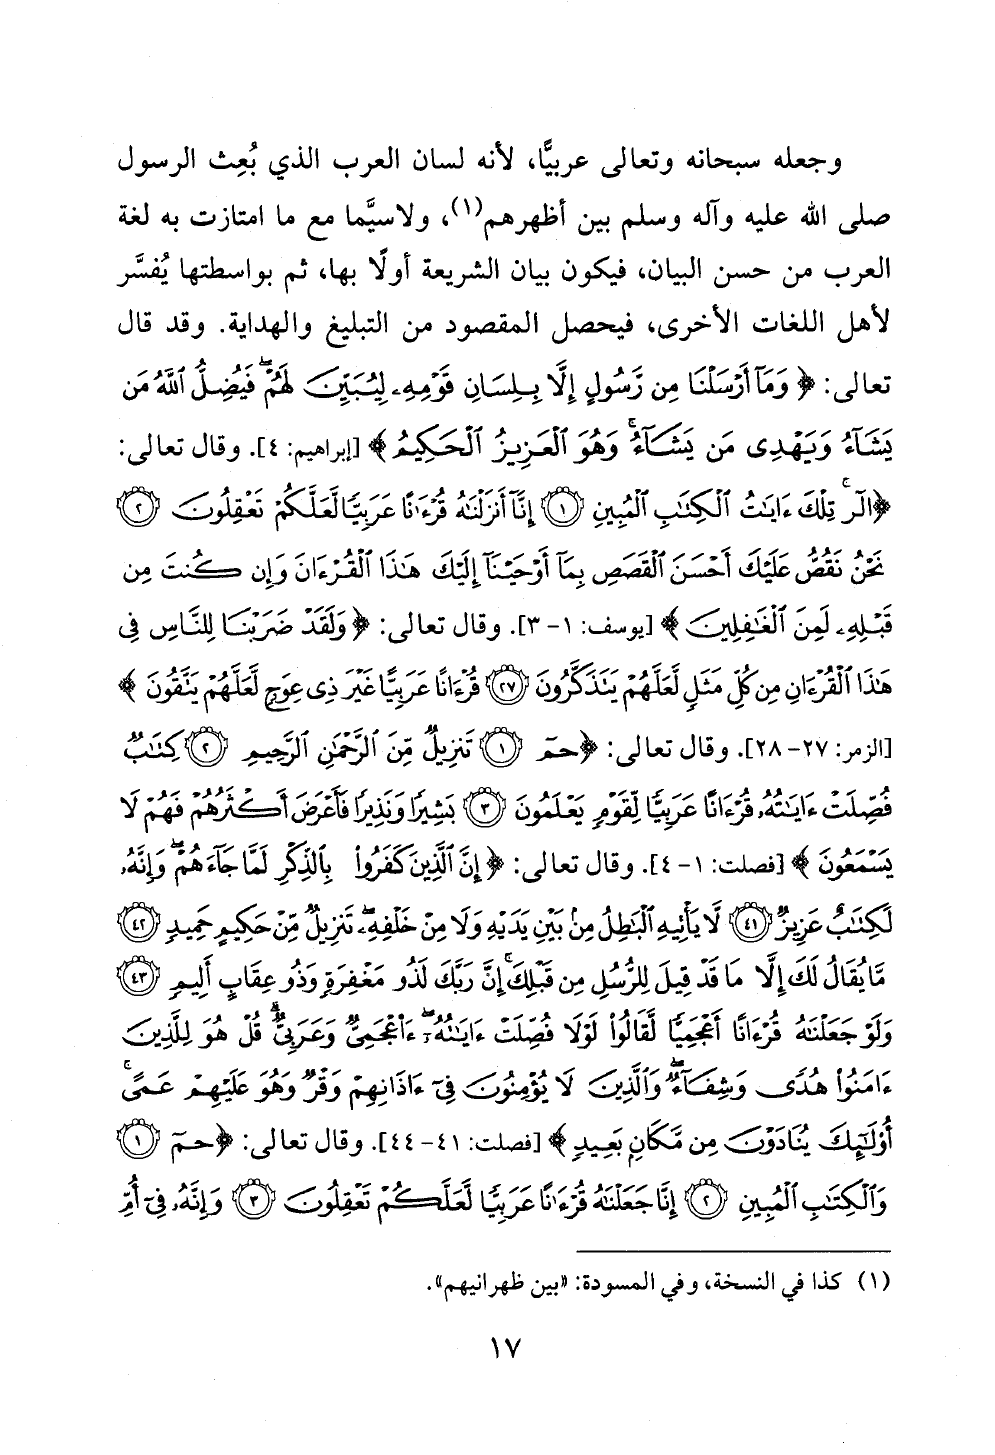 وجعله سبحانه وتعالى عربيًّا، لأنه لسان العرب الذي بُعِث الرسول
صلى الله عليه وآله وسلم بين أظهرهم(١)، ولاسيَّما مع ما امتازت به لغة
العرب من حسن البيان، فيكون بيان الشريعة أولًا بها، ثم بواسطتها يُفسَّر
لأهل اللغات الأخرى، فيحصل المقصود من التبليغ والهداية. وقد قال
تعالى: ﴿ وَمَآ أَرْسَلْنَا مِن رَّسُولٍ إِلَّا بِلِسَانِ قَوْمِهِۦ لِيُبَيِّنَ لَهُمْۖ فَيُضِلُّ ٱللَّهُ مَن
يَشَآءُ وَيَهْدِى مَن يَشَآءُۚ وَهُوَ ٱلْعَزِيزُ ٱلْحَكِيمُ ﴾ [إبراهيم: ٤]. وقال تعالى:
﴿الٓرۚ تِلْكَ ءَايَٰتُ ٱلْكِتَٰبِ ٱلْمُبِينِ ۝١ إِنَّآ أَنزَلْنَٰهُ قُرْءَٰنًا عَرَبِيًّا لَّعَلَّكُمْ تَعْقِلُونَ ۝٢
نَحْنُ نَقُصُّ عَلَيْكَ أَحْسَنَ ٱلْقَصَصِ بِمَآ أَوْحَيْنَآ إِلَيْكَ هَٰذَا ٱلْقُرْءَانَ وَإِن كُنتَ مِن
قَبْلِهِۦ لَمِنَ ٱلْغَٰفِلِينَ ﴾ [يوسف: ١- ٣]. وقال تعالى: ﴿ وَلَقَدْ ضَرَبْنَا لِلنَّاسِ فِى
هَٰذَا ٱلْقُرْءَانِ مِن كُلِّ مَثَلٍ لَّعَلَّهُمْ يَتَذَكَّرُونَ ۝٢٧ قُرْءَانًا عَرَبِيًّا غَيْرَ ذِى عِوَجٍ لَّعَلَّهُمْ يَتَّقُونَ ﴾
[الزمر: ٢٧- ٢٨]. وقال تعالى: ﴿حمٓ ۝١ تَنزِيلٌ مِّنَ ٱلرَّحْمَٰنِ ٱلرَّحِيمِ ۝٢ كِتَٰبٌ
فُصِّلَتْ ءَايَٰتُهُۥ قُرْءَانًا عَرَبِيًّا لِّقَوْمٍ يَعْلَمُونَ ۝٣ بَشِيرًا وَنَذِيرًا فَأَعْرَضَ أَكْثَرُهُمْ فَهُمْ لَا
يَسْمَعُونَ ﴾ [فصلت: ١- ٤]. وقال تعالى: ﴿ إِنَّ ٱلَّذِينَ كَفَرُوا۟ بِٱلذِّكْرِ لَمَّا جَآءَهُمْۖ وَإِنَّهُۥ
لَكِتَٰبٌ عَزِيزٌ ۝٤١ لَّا يَأْتِيهِ ٱلْبَٰطِلُ مِنۢ بَيْنِ يَدَيْهِ وَلَا مِنْ خَلْفِهِۦۖ تَنزِيلٌ مِّنْ حَكِيمٍ حَمِيدٍ ۝٤٢
مَّا يُقَالُ لَكَ إِلَّا مَا قَدْ قِيلَ لِلرُّسُلِ مِن قَبْلِكَۚ إِنَّ رَبَّكَ لَذُو مَغْفِرَةٍ وَذُو عِقَابٍ أَلِيمٍ ۝٤٣
وَلَوْ جَعَلْنَٰهُ قُرْءَانًا أَعْجَمِيًّا لَّقَالُوا۟ لَوْلَا فُصِّلَتْ ءَايَٰتُهُۥٓۖ ءَا۬عْجَمِىٌّ وَعَرَبِىٌّۗ قُلْ هُوَ لِلَّذِينَ
ءَامَنُوا۟ هُدًى وَشِفَآءٌۖ وَٱلَّذِينَ لَا يُؤْمِنُونَ فِىٓ ءَاذَانِهِمْ وَقْرٌ وَهُوَ عَلَيْهِمْ عَمًىۚ
أُو۟لَٰٓئِكَ يُنَادَوْنَ مِن مَّكَانٍۭ بَعِيدٍ ﴾ [فصلت: ٤١- ٤٤]. وقال تعالى: ﴿حمٓ ۝١
وَٱلْكِتَٰبِ ٱلْمُبِينِ ۝٢ إِنَّا جَعَلْنَٰهُ قُرْءَٰنًا عَرَبِيًّا لَّعَلَّكُمْ تَعْقِلُونَ ۝٣ وَإِنَّهُۥ فِىٓ أُمِّ
(١) كذا في النسخة، وفي المسودة: «بين ظهرانيهم».
١٧